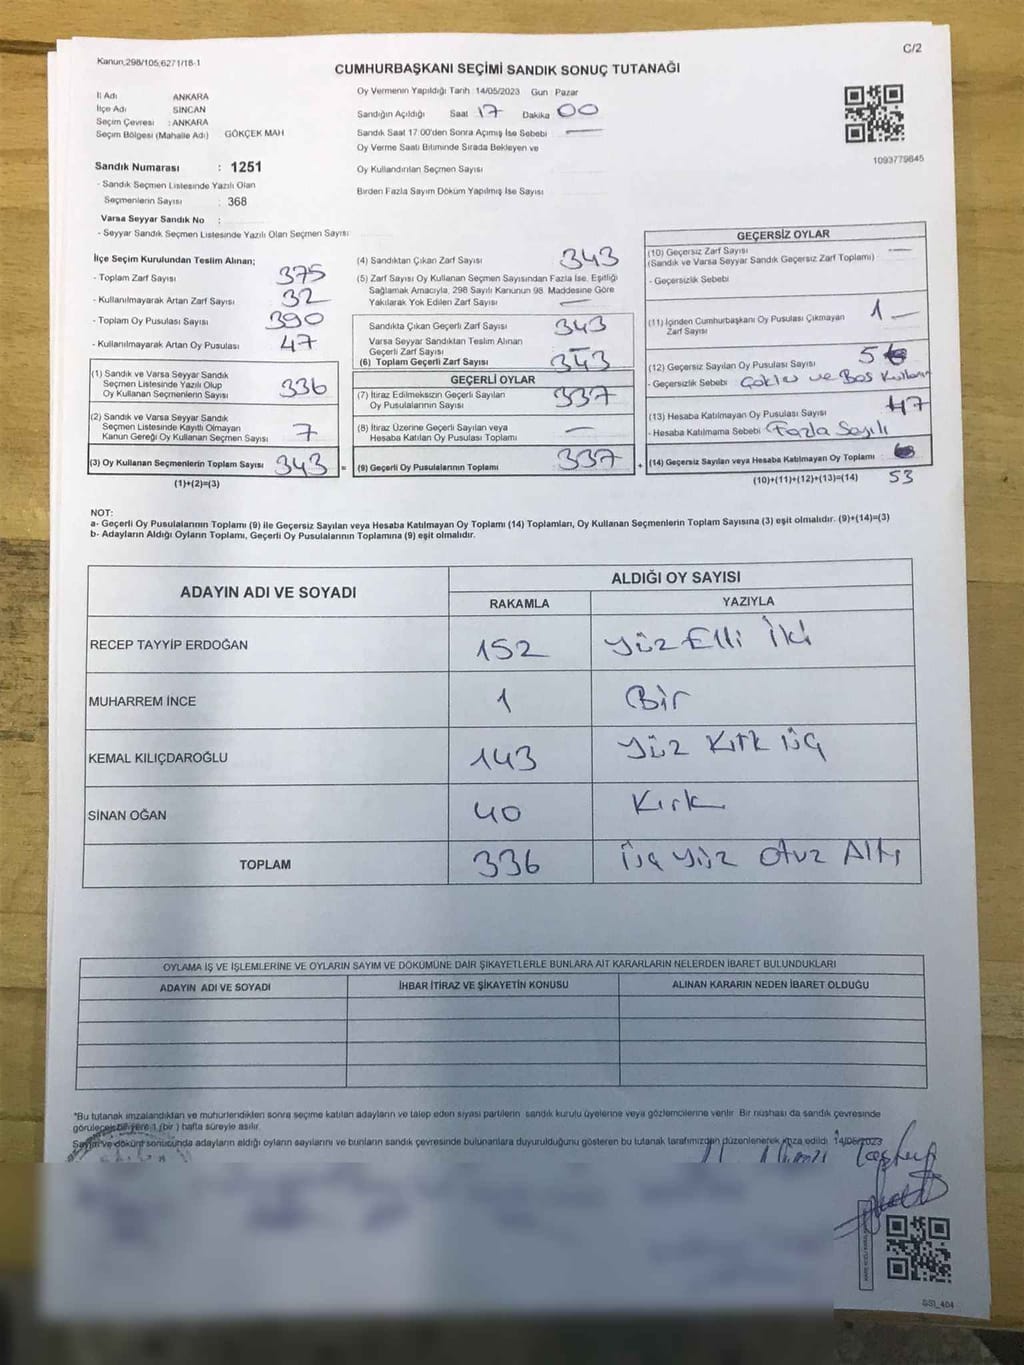 Kanun,298/105,6271/18-1
C/2
CUMHURBAŞKANI SEÇİMİ SANDIK SONUÇ TUTANAĞI
İl Adı ANKARA
İlçe Adı SİNCAN
Seçim Çevresi : ANKARA
Seçim Bölgesi (Mahalle Adı) GÖKÇEK MAH
Sandık Numarası : 1251
- Sandık Seçmen Listesinde Yazılı Olan
Seçmenlerin Sayısı : 368
Varsa Seyyar Sandık No :
- Seyyar Sandık Seçmen Listesinde Yazılı Olan Seçmen Sayısı
Oy Vermenin Yapıldığı Tarih 14/05/2023 Gün Pazar
Sandığın Açıldığı Saat 17 Dakika 00
Sandık Saat 17:00'den Sonra Açılmış İse Sebebi —
Oy Verme Saati Bitiminde Sırada Bekleyen ve
Oy Kullandırılan Seçmen Sayısı
Birden Fazla Sayım Döküm Yapılmış İse Sayısı
1093779845
İlçe Seçim Kurulundan Teslim Alınan;
- Toplam Zarf Sayısı 375
- Kullanılmayarak Artan Zarf Sayısı 32
- Toplam Oy Pusulası Sayısı 390
- Kullanılmayarak Artan Oy Pusulası 47
(1) Sandık ve Varsa Seyyar Sandık
Seçmen Listesinde Yazılı Olup
Oy Kullanan Seçmenlerin Sayısı 336
(2) Sandık ve Varsa Seyyar Sandık
Seçmen Listesinde Kayıtlı Olmayan
Kanun Gereği Oy Kullanan Seçmen Sayısı 7
(3) Oy Kullanan Seçmenlerin Toplam Sayısı 343 =
(1)+(2)=(3)
(4) Sandıktan Çıkan Zarf Sayısı 343
(5) Zarf Sayısı Oy Kullanan Seçmen Sayısından Fazla İse, Eşitliği
Sağlamak Amacıyla, 298 Sayılı Kanunun 98. Maddesine Göre
Yakılarak Yok Edilen Zarf Sayısı —
Sandıkta Çıkan Geçerli Zarf Sayısı 343
Varsa Seyyar Sandıktan Teslim Alınan
Geçerli Zarf Sayısı —
(6) Toplam Geçerli Zarf Sayısı 343
GEÇERLİ OYLAR
(7) İtiraz Edilmeksizin Geçerli Sayılan
Oy Pusulalarının Sayısı 337
(8) İtiraz Üzerine Geçerli Sayılan veya
Hesaba Katılan Oy Pusulası Toplamı —
(9) Geçerli Oy Pusulalarının Toplamı 337 +
GEÇERSİZ OYLAR
(10) Geçersiz Zarf Sayısı —
(Sandık ve Varsa Seyyar Sandık Geçersiz Zarf Toplamı)
- Geçersizlik Sebebi
(11) İçinden Cumhurbaşkanı Oy Pusulası Çıkmayan 1 —
Zarf Sayısı
(12) Geçersiz Sayılan Oy Pusulası Sayısı 5
- Geçersizlik Sebebi Çoklu ve Boş Kullanım
(13) Hesaba Katılmayan Oy Pusulası Sayısı 47
- Hesaba Katılmama Sebebi Fazla Sayılı
(14) Geçersiz Sayılan veya Hesaba Katılmayan Oy Toplamı
(10)+(11)+(12)+(13)=(14) 53
NOT:
a- Geçerli Oy Pusulalarının Toplamı (9) ile Geçersiz Sayılan veya Hesaba Katılmayan Oy Toplamı (14) Toplamları, Oy Kullanan Seçmenlerin Toplam Sayısına (3) eşit olmalıdır. (9)+(14)=(3)
b- Adayların Aldığı Oyların Toplamı, Geçerli Oy Pusulalarının Toplamına (9) eşit olmalıdır.
ADAYIN ADI VE SOYADI
ALDIĞI OY SAYISI
RAKAMLA YAZIYLA
RECEP TAYYİP ERDOĞAN 152 Yüz Elli İki
MUHARREM İNCE 1 Bir
KEMAL KILIÇDAROĞLU 143 Yüz Kırk üç
SİNAN OĞAN 40 Kırk
TOPLAM 336 Üç Yüz Otuz Altı
OYLAMA İŞ VE İŞLEMLERİNE VE OYLARIN SAYIM VE DÖKÜMÜNE DAİR ŞİKAYETLERLE BUNLARA AİT KARARLARIN NELERDEN İBARET BULUNDUKLARI
ADAYIN ADI VE SOYADI İHBAR İTİRAZ VE ŞİKAYETİN KONUSU ALINAN KARARIN NEDEN İBARET OLDUĞU
*Bu tutanak imzalandıktan ve mühürlendikten sonra seçime katılan adayların ve talep eden siyasi partilerin sandık kurulu üyelerine veya gözlemcilerine verilir. Bir nüshası da sandık çevresinde
görülecek bir yere 1 (bir) hafta süreyle asılır.
Sayım ve döküm sonucunda adayların aldığı oyların sayılarını ve bunların sandık çevresinde bulunanlara duyurulduğunu gösteren bu tutanak tarafımızdan düzenlenerek imza edildi. 14/05/2023
GSI_404